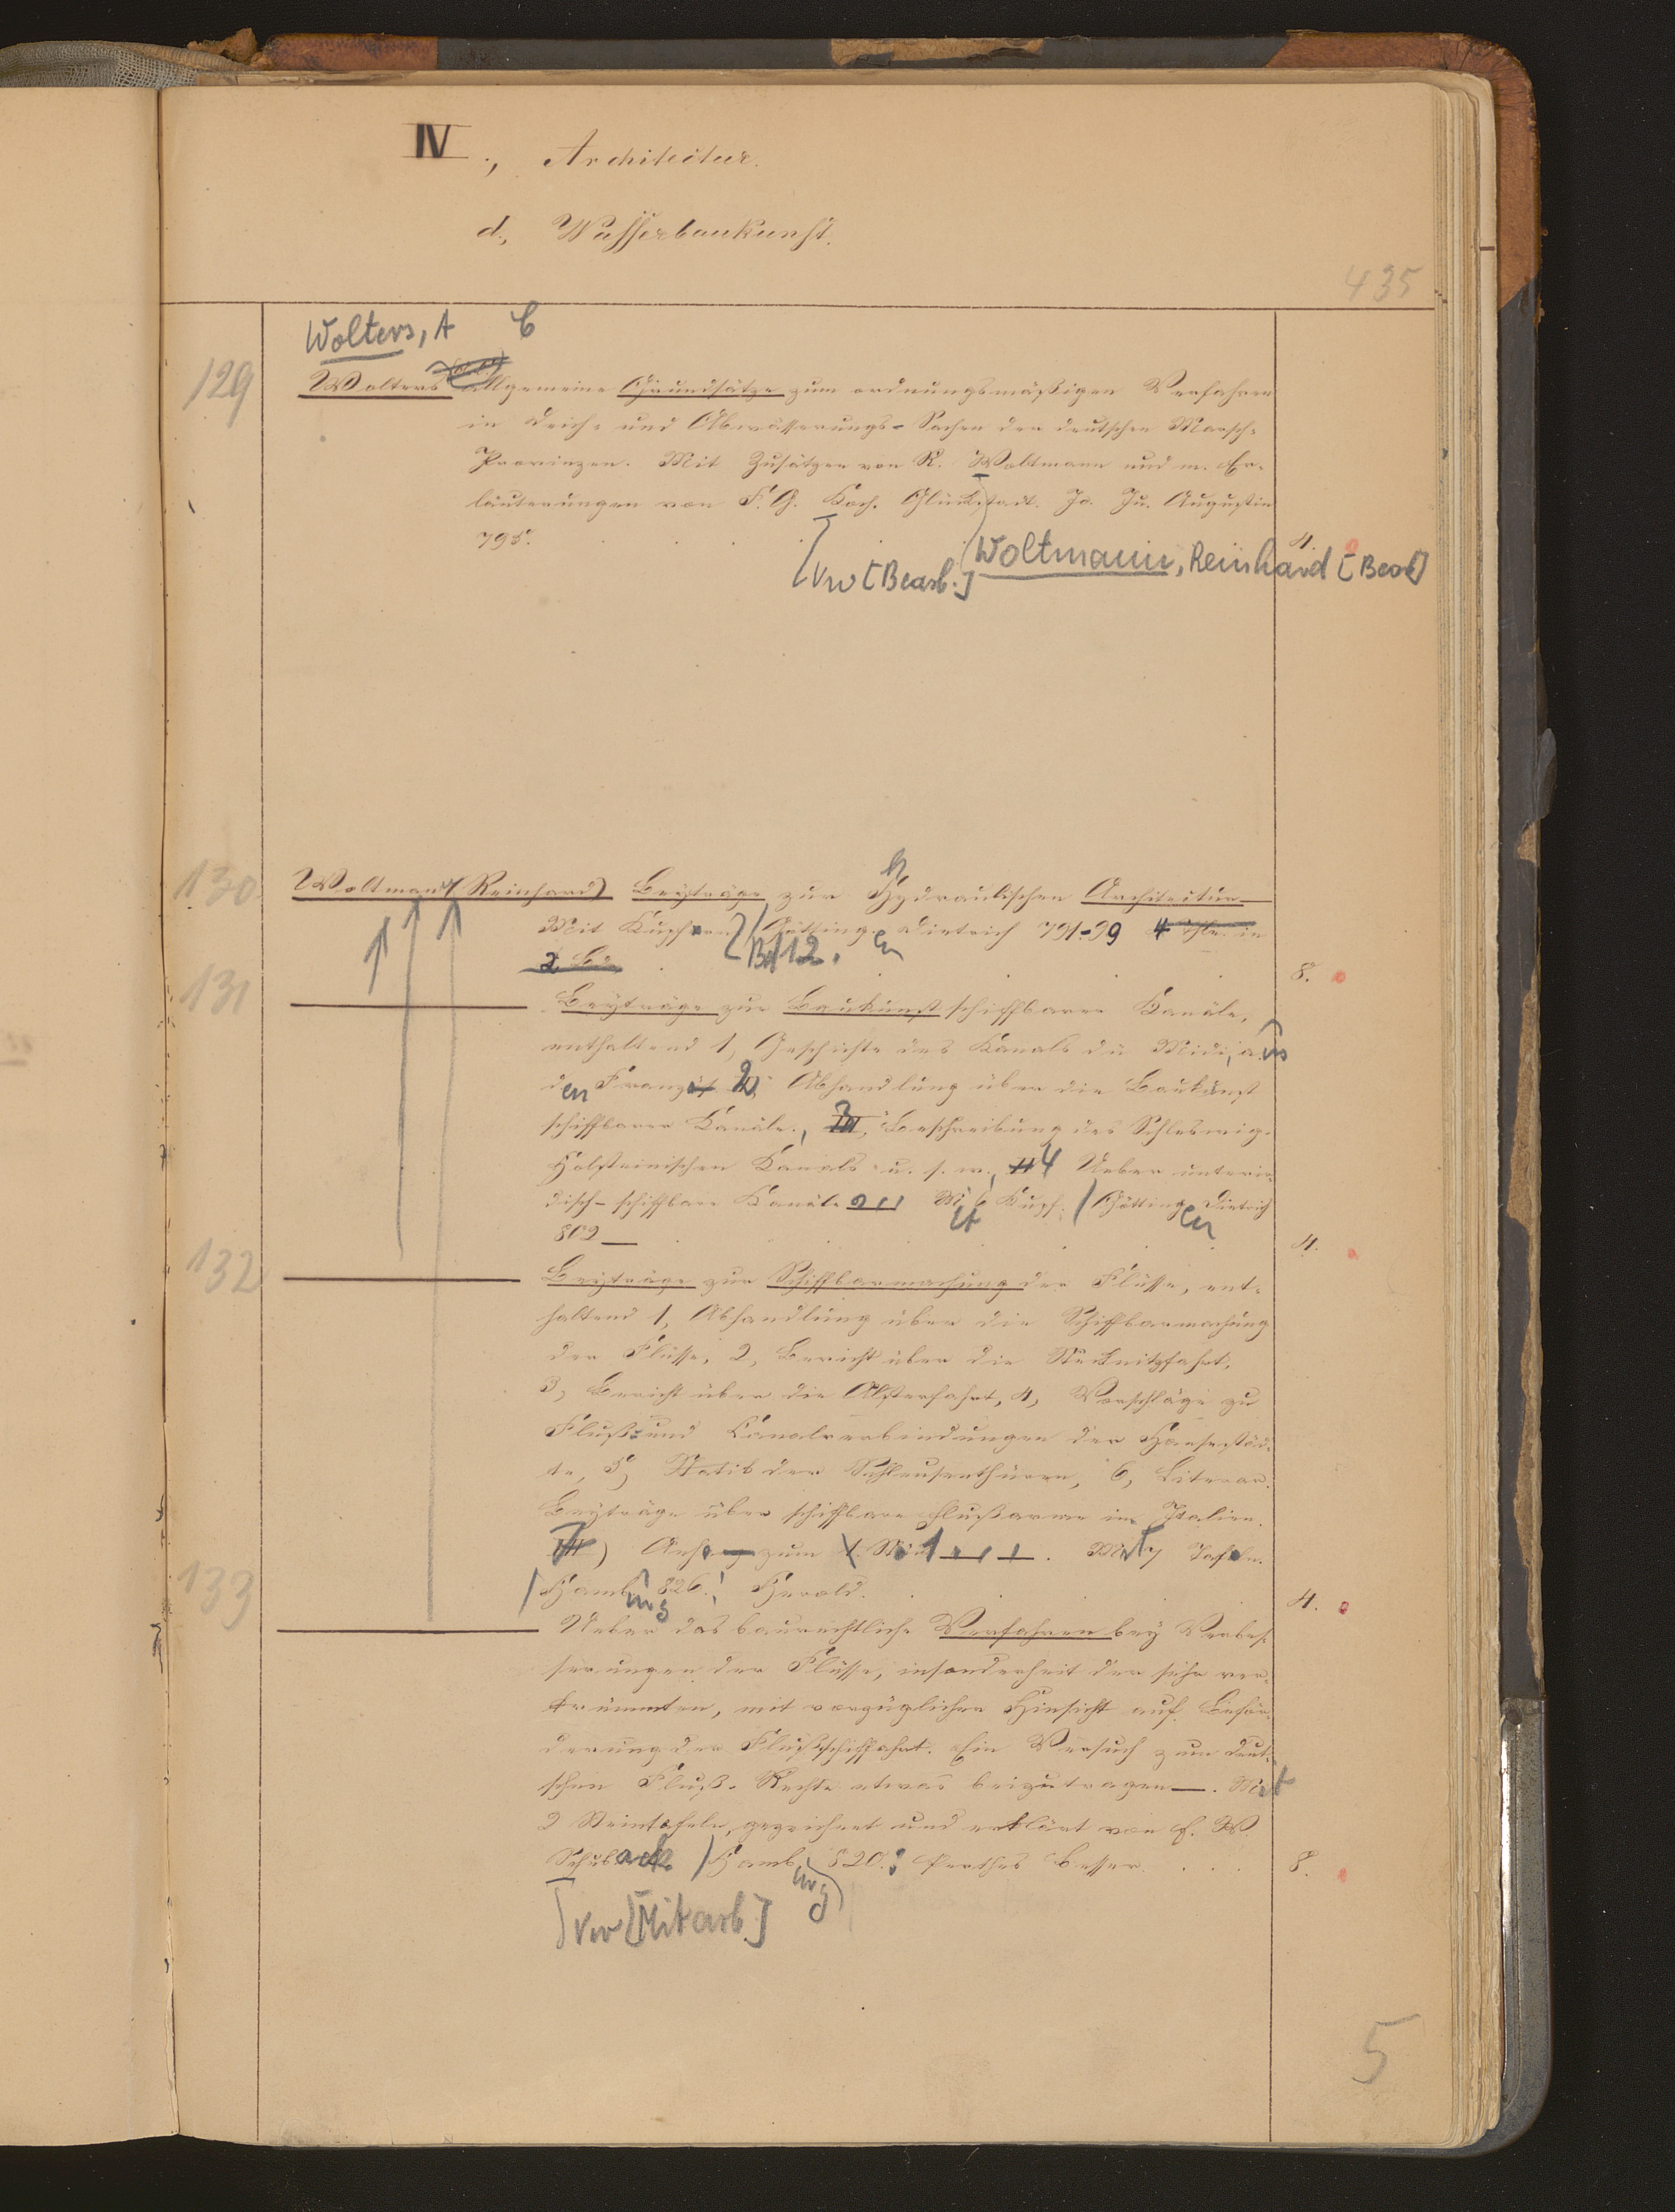 IV., Architectur.
d., Wasserbaukunst.
435
Wolters, A C
129
Wolters Allgemeine Grundsätze zum ordnungsmäßigen Verfahren
in Deich- und Abwässerungs-Sachen der deutschen Marsch-
Provinzen. Mit Zusätzen von R. Woltmann und m. Er-
läuterungen von F. G. Koch. Glückstadt. Jo. Ju. Augustin
795. 4.
[Vw [Bearb.] Woltmann, Reinhard [Bearb]
130
Woltman (Reinhard) Beyträge zur Hydraulischen Architectur
Mit Kupfern / Götting. en Dietrich 791-99 4 Thle. in
2 Bde. Bd 1 2. 8.
131
Beyträge zur Baukunst schiffbarer Kanäle,
enthaltend 1, Geschichte des Kanals du Midi, aus
den Franz. 2, Abhandlung über die Baukunst
schiffbarer Kanäle, 3, Beschreibung des Schleswig-
Holsteinischen Kanals u. s. w., 4 Ueber unterir-
disch-schiffbare Kanäle ... Mit 6 Kupf. / Göttingen Dietrich
802 4.
132
Beyträge zur Schiffbarmachung der Flüsse, ent-
haltend 1, Abhandlung über die Schiffbarmachung
der Flüsse, 2, Bericht über die Stecknitzfahrt,
3, Bericht über die Alsterfahrt, 4, Vorschläge zu
Fluß- und Canalverbindungen der Hansestäd-
te, 5, Statik der Schleusenthüren, 6, Literar.
Beyträge über schiffbare Flußarme in Italien.
7) Anhang zum 1. Mit 7 Tafeln.
133
/ Hamburg 826.: Herold. 4.
Ueber das baurechtliche Verfahren bey Verbes-
serungen der Flüsse, insonderheit der sehr ver-
krümmten, mit vorzüglicher Hinsicht auf Beför-
derung der Flußschiffahrt. Ein Versuch zum deut-
schen Fluß-Rechte etwas beizutragen. Mit
2 Steintafeln, gezeichnet und erklärt von E. W.
Schuback / Hamburg 820.: Perthes Besser. 8.
[Vw [Mitarb.]
5